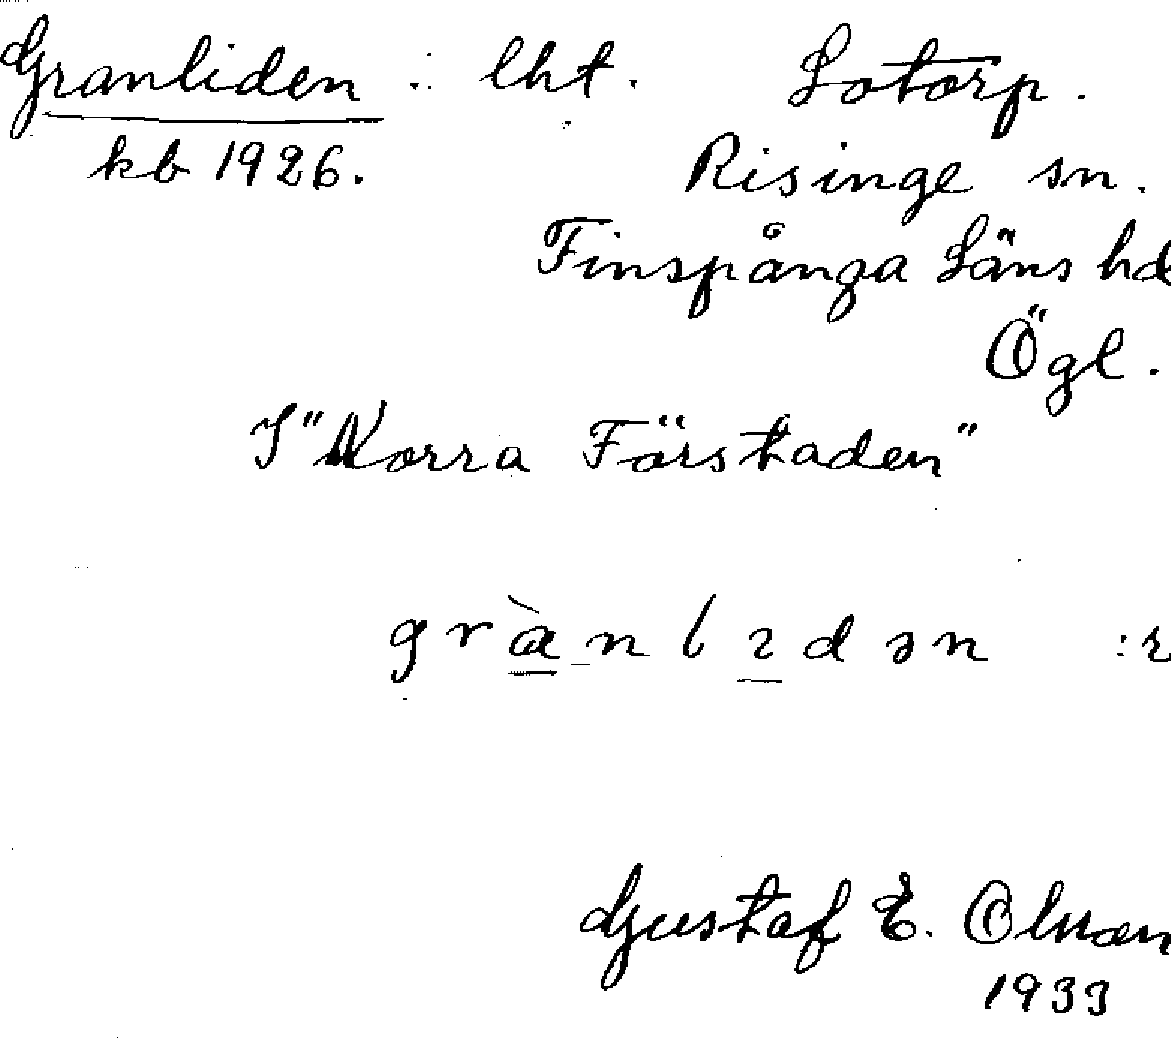 Granliden : lht. Lotorp.
kb 1926. Risinge sn.
Finspånga Läns hd
Ögl.
I "Norra Förstaden"
Gustaf E. Olsson
1933